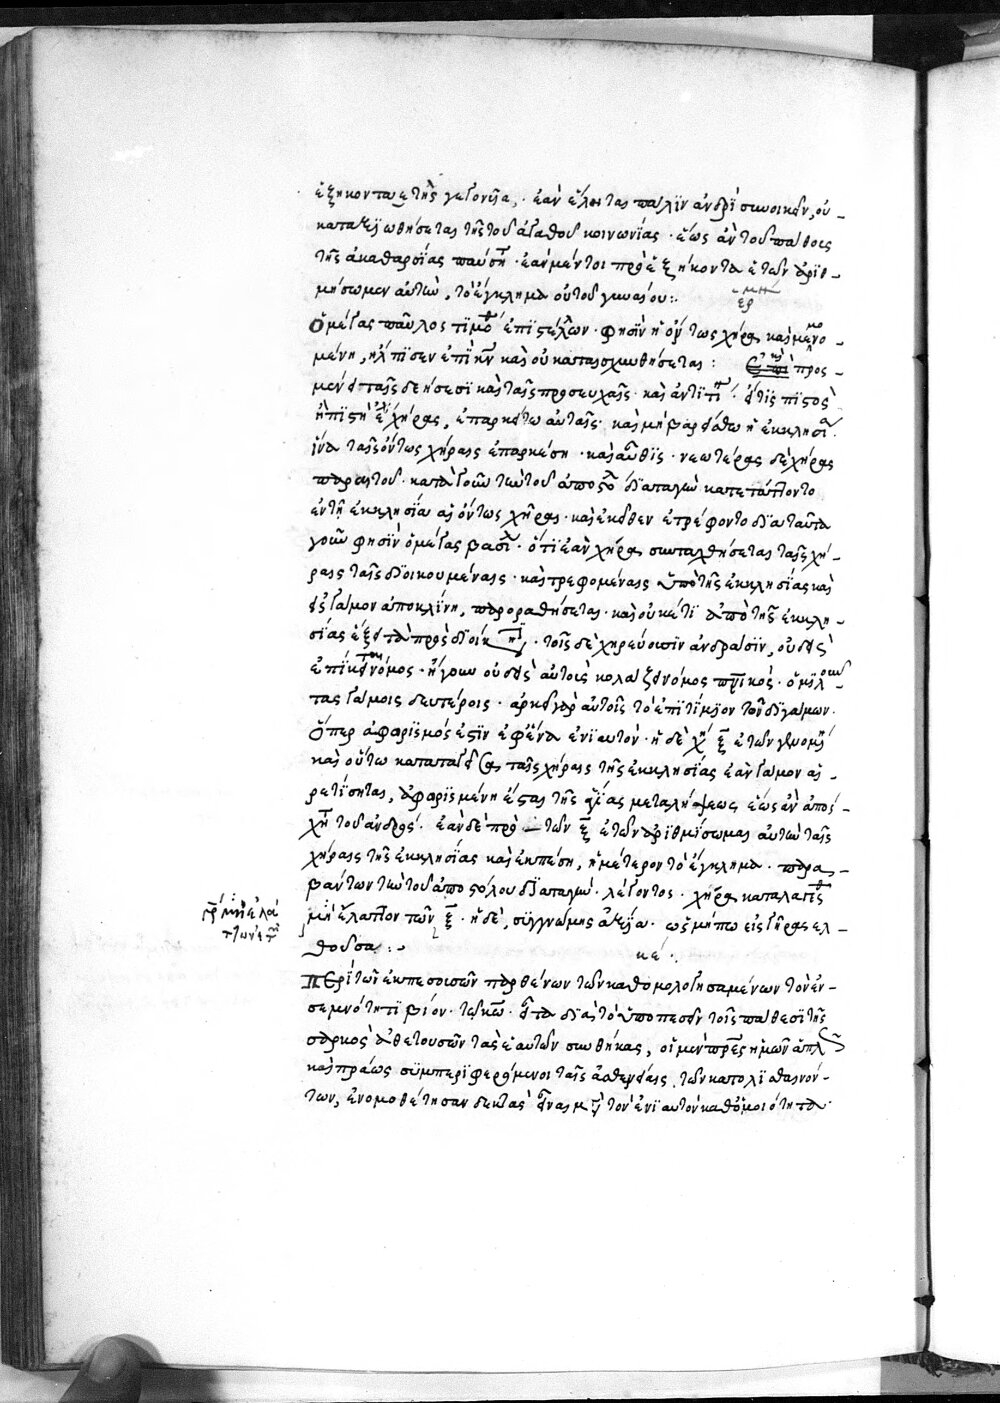 ἑξηκονταετὴς γεγονυῖα, ἐὰν ἕληται πάλιν ἀνδρὶ συνοικεῖν, οὐ
καταξιωθήσεται τῆς τοῦ ἀγαθοῦ κοινωνίας · ἕως ἂν τοῦ πάθους
τῆς ἀκαθαρσίας παύσηται · ἐὰν μέντοι πρὸ ἑξήκοντα ἐτῶν ἀριθ-
μήσωμεν αὐτὴν, τὸ ἔγκλημα οὐ τοῦ γυναίου :
ἑρμη
Ὁ μέγας παῦλος τιμοθ ἐπιστέλλων · φησὶν ἡ ὄντως χήρα καὶ μεμονο-
μένη, ἤλπισεν ἐπὶ κν καὶ οὐ καταισχυνθήσεται : προσ-
μένει ταῖς δεήσεσι καὶ ταῖς προσευχαῖς · καὶ ἀντὶ τι · εἴ τις πιστὸς
ἢ πιστὴ ἔχει χήρας, ἐπαρκείτω αὐταῖς · καὶ μὴ βαρείσθω ἡ ἐκκλησία
ἵνα ταῖς ὄντως χήραις ἐπαρκέση · καὶ αὖθις · νεωτέρας δὲ χήρας
παραιτοῦ · κατὰ γοῦν τὴν τοῦ ἀποστό διαταγὴν κατετάττοντο
ἐν τῇ ἐκκλησία αἱ ὄντως χῆραι · καὶ ἐκεῖθεν ἐτρέφοντο διὰ ταῦτα
γοῦν φησὶν ὁ μέγας βασίλ · ὅτι ἐὰν χήρα συνταχθήσεται ταῖς χή-
ραις ταῖς διοικουμέναις · καὶ τρεφομέναις ὑπὸ τῆς ἐκκλησίας καὶ
εἰς γάμον ἀποκλίνη, παροραθήσεται · καὶ οὐκέτι ἀπὸ τῆς ἐκκλη-
σίας ἕξει τὰ πρὸς διοίκησιν · τοῖς δὲ χηρεύουσιν ἀνδράσιν, οὐδεὶς
ἐπίκειται νόμος · ἤγουν οὐδεὶς αὐτοὺς κολάζει νόμος πνικὸς · ὁμιλοῦν-
τας γάμοις δευτέροις · ἀρκεῖ γὰρ αὐτοῖς τὸ ἐπιτίμιον τῶν διγάμων ·
ὅπερ ἀφορισμός ἐστιν ἐφ' ἕνα ἐνιαυτόν · ἡ δὲ χήρα ξ ἐτῶν γενομένη
καὶ οὕτω καταταγεῖσα ταῖς χήραις τῆς ἐκκλησίας ἐὰν γάμον αἱ-
ρετίσηται, ἀφορισμένη ἔσται τῆς ἁγίας μεταλήψεως ἕως ἂν ἀποσ-
χῇ τοῦ ἀνδρός · ἐὰν δὲ πρὸ τῶν ξ ἐτῶν ἀριθμήσωμαι αὐτὴν ταῖς
χήραις τῆς ἐκκλησίας καὶ ἐκπέση, ἡμέτερον τὸ ἔγκλημα · παρα-
βάντων τὴν τοῦ ἀποστόλου διαταγὴν · λέγοντος · χήρα καταλεγέσθ
μὴ ἔλαττον τῶν ξ · ἡ δὲ, συγγνώμης ἀξία · ὡς μήπω εἰς γῆρας ἐλ-
θοῦσα :
κε ·
Περὶ τῶν ἐκπεσουσῶν παρθένων τῶν καθομολογησαμένων τὸν ἐν
σεμνότητι βίον · τῶ κω · εἶτα διὰ τὸ ὑποπεσεῖν τοῖς πάθεσι τῆς
σαρκὸς ἀθετουσῶν τὰς ἑαυτῶν συνθήκας, οἱ μὲν πρες ἡμῶν ἁπλῶς
καὶ πράως συμπεριφερόμενοι ταῖς ἀσθενείαις τῶν κατολισθαινόν-
των, ἐνομοθέτησαν δεκτὰς εἶναι μετὰ τὸν ἐνιαυτὸν καθ' ὁμοιότητα